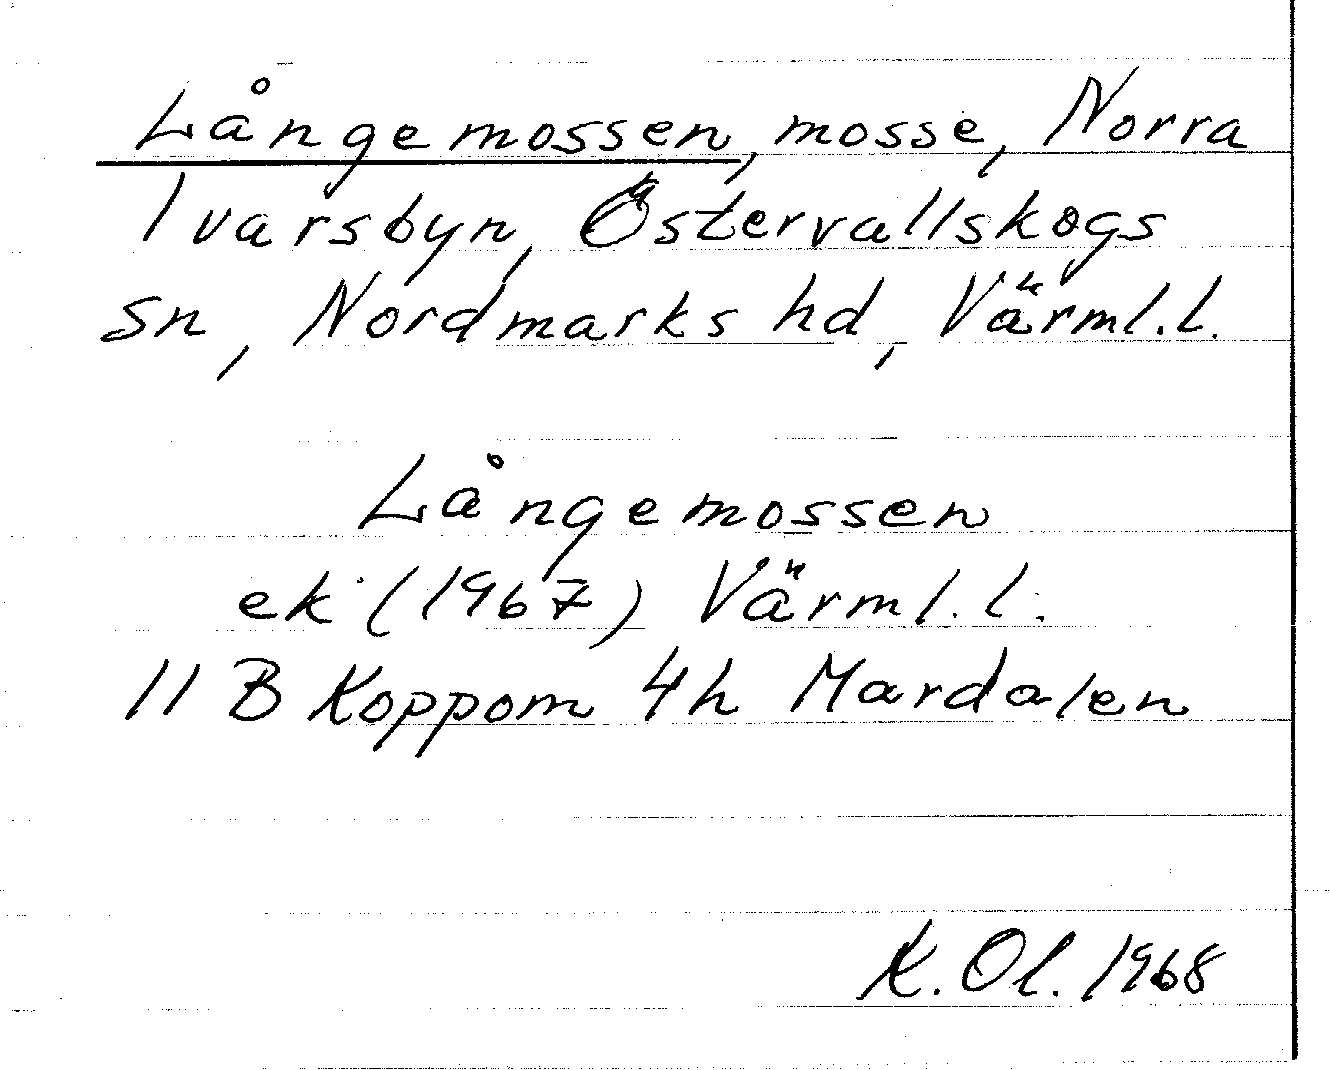 Långemossen, mosse, Norra
Ivarsbyn, Östervallskogs
sn, Nordmarks hd, Värml.l.
Långemossen
ek (1967) Värml.l.
11 B Koppom 4h Mardalen
K.Ol. 1968